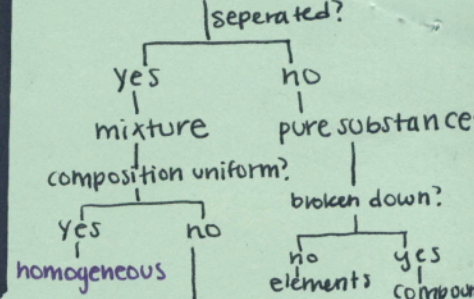 seperated?
yes no
mixture pure substance
composition uniform?
broken down?
yes no
no yes
homogeneous elements